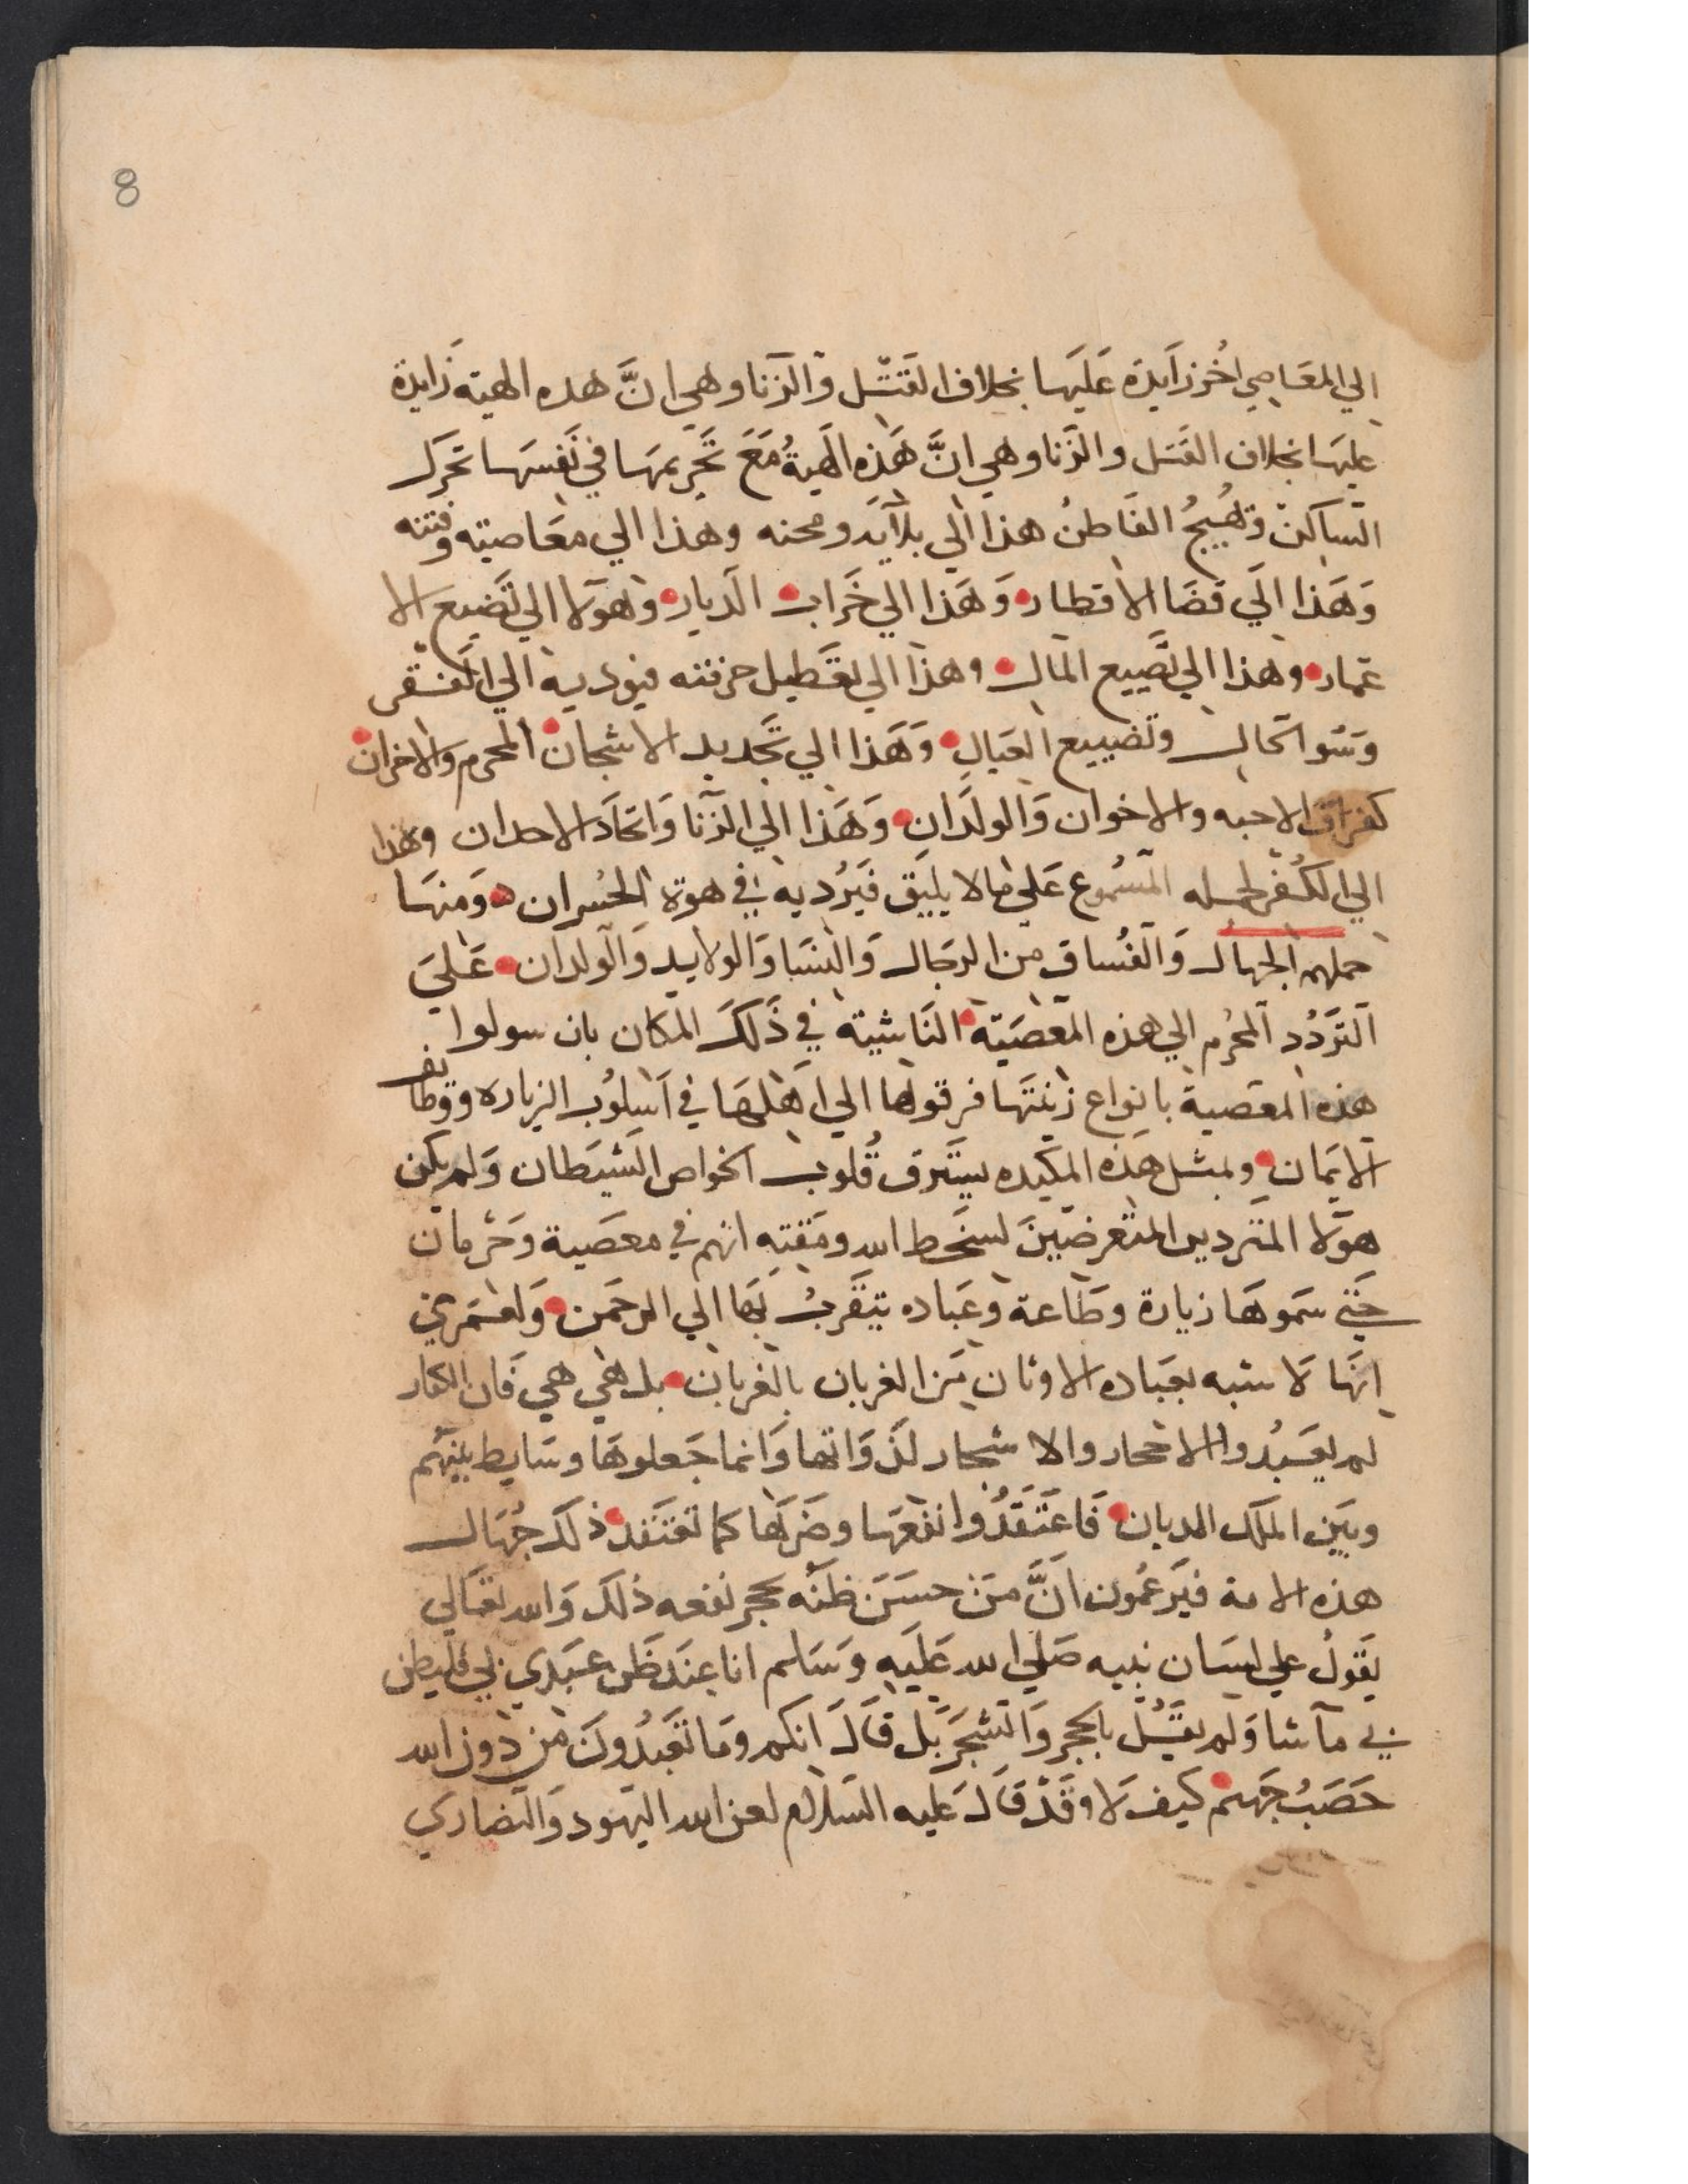 8
الي المعَاصِي اخُر زَايدَة عَلَيهَا بخلاف القَتْل وَالزنا وهي انَّ هذه الهيته زَايدة
عليهَا بخلاف القَتل والزّنا وهي انَّ هَذه الهيةُ مَعَ تَحَريمهَا في نَفسهَا تحَرك
السّاكنْ وَتُهَييجُ القَاطنُ هذا الي بلآيَه ومحنه وهذا الي معَاصيته وفتنه
وَهَذا الَي قَضَا الاقطار وَهَذا الي خَراب الدّيار وهَولا الي تَضيع الا
عمار وهذا الي تَضييع المال وهذَا الي تعَطيل حرفته فيوديه الي الفَقر
وَسَو الحَال وتضييع العيال وَهَذا الي تَجديد الاشجان المحرم والاخران
كفراق الاحبه والاخوان وَالولدَان وَهَذا الي الزّنا وَاتخاذ الاحدان وهذا
الي الكُفر لحمله المسُموع عَلي مَالا يليق فَيرُديه في هوة الخسران وَمنهَا
حملهم الجهال وَالفُساق من الرجَال وَالنسَا وَالولايد وَالولدان عَلي
التَرَدُد المحُرم الي هذه المعَصيَته النَاشيته في ذَلكَ المكان بان سولوا
هذه المعَصية بانواع زينَتهَا فرقوها الي اَهلهَا في اَسلوُب الزياره ووظائف
الايمَان ولمثل هَذه المكيده يستَرق قُلوب الخواص الشيَطان وَلم يكن
هَولا المتردين المتعرضَينَ لسخَط الله ومَقته انهم في معصَية وَحَرمان
حَتي سَموهَا زيارة وطَاعة وعَباده يتَقَربُ بهَا الي الرحمَن وَلعَمَري
انهَا لاَ شبه بعبَاده الاوثان مَن الغربان بالغربان بل هَي هي فَان الكفار
لم يعَبدُوا الاحجار والاشجار لذَوَاتها وَانما جَعلوهَا وسَايط بَينهم
وبَين الملكَ الديان فَاعتَقَدُوا نفعَها وضَرهَا كما تعَتَقد ذلكَ جُهَال
هذه الامة فيَزعمُون انَّ مَن حسَن ظنَه بحجر نفعه ذلكَ وَالله تعَالي
يَقول علي لسَان نبيه صَلي الله عَليَه وَسَلم انا عندَ ظَن عبَدي بي فليظن
بي مَا شا وَلم يقَل بالحجر وَالشجَر بَل قَال انكم ومَا تعَبدُونَ من دون الله
حَصَبُ جَهنم كيف لَا وَقَدْ قَال عَليه السَلام لعن الله اليهَود وَالنَصَاري